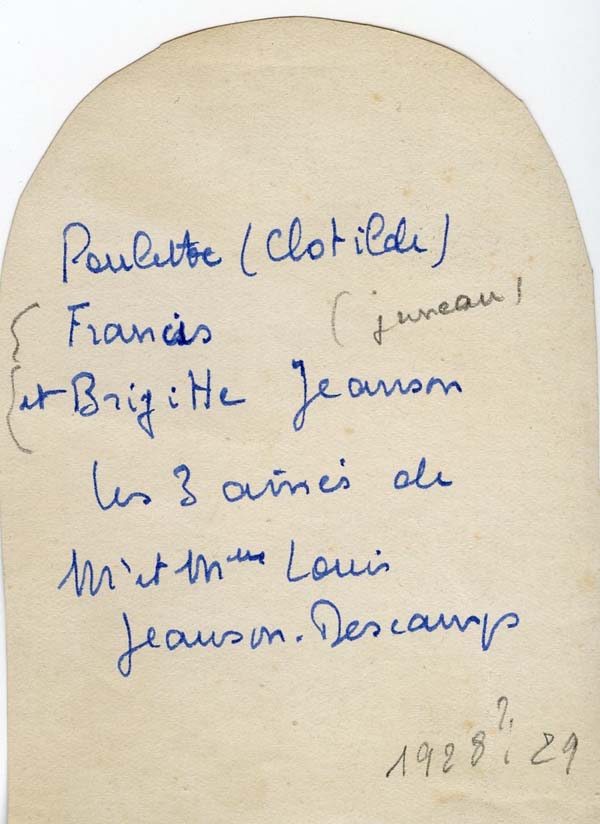 Paulette (Clotilde)
Francis (jumeau)
et Brigitte Jeanson
les 3 aînés de
Mr et Mme Louis
Jeanson-Descamps
1928? 29